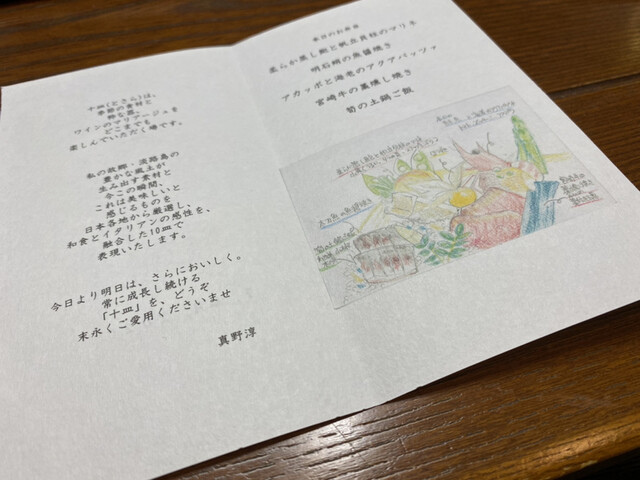 十皿(とさら)は、
季節の食材と
粋な器、
ワインのマリアージュを
どこまでも
楽しんでいただく場です。
私の故郷・淡路島の
豊かな風土が
生み出す素材と
今この瞬間、
これは美味しいと
感じるものを
日本各地から厳選し、
和食とイタリアンの感性を、
融合した10皿で
表現いたします。
今日より明日は、さらにおいしく。
常に成長し続ける
「十皿」を、どうぞ
末永くご愛用くださいませ
真野淳
本日のお弁当
柔らか蒸し鮑と帆立貝柱のマリネ
明石鯛の魚醤焼き
アカッポと海老のアクアパッツァ
宮崎牛の藁燻し焼き
筍の土鍋ご飯